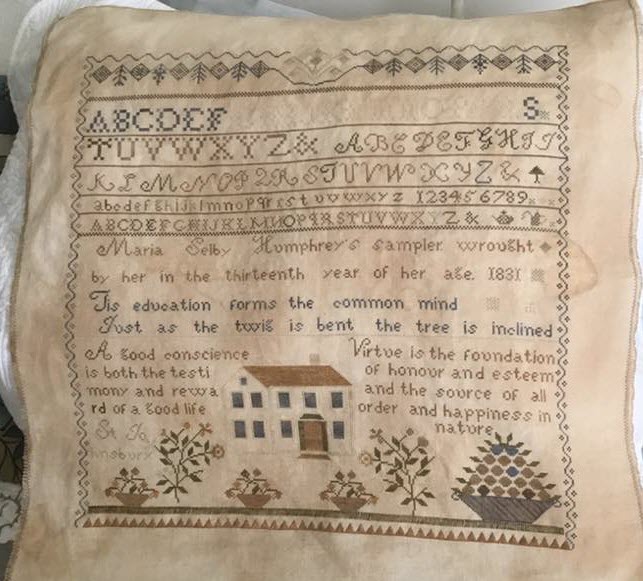 ABCDEF S
TUVWXYZ& ABCDEFGHIJ
KLMNOPQRSTUVWXYZ&
abcdefghijklmnopqrstuvwxyz 123456789
ABCDEFGHIJKLMNOPQRSTUVWXYZ&
Maria Selby Humphrey's sampler wrought
by her in the thirteenth year of her age. 1831
Tis education forms the common mind
Just as the twig is bent the tree is inclined
A good conscience
is both the testi
mony and rewa
rd of a good life
St Jo
hnsbury
Virtue is the foundation
of honour and esteem
and the source of all
order and happiness in
nature